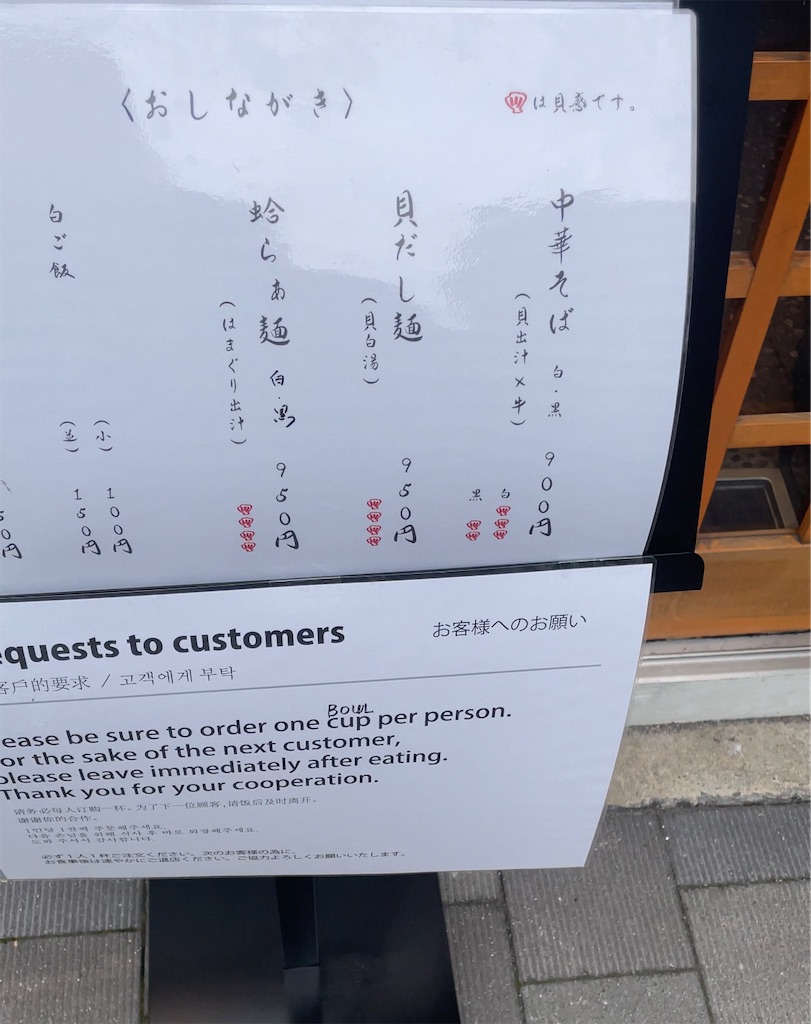 〈おしながき〉
は貝感です。
中華そば 白・黒 900円
(貝出汁×牛)
白
黒
貝だし麺 950円
(貝白湯)
蛤らぁ麺 白・黒 950円
(はまぐり出汁)
白ご飯
(小) 100円
(並) 150円
50円
equests to customers
お客様へのお願い
客戶的要求 / 고객에게 부탁
BOWL
ease be sure to order one cup per person.
or the sake of the next customer,
please leave immediately after eating.
Thank you for your cooperation.
请务必每人订购一杯。为了下一位顾客,请饭后及时离开。
谢谢你的合作。
1인당 1잔씩 주문해주세요.
다음 손님을 위해 식사 후 바로 퇴장해주세요.
도와 주셔서 감사합니다.
必ず1人1杯ご注文ください。次のお客様の為に、
お食事後は速やかにご退店ください。ご協力よろしくお願いいたします。